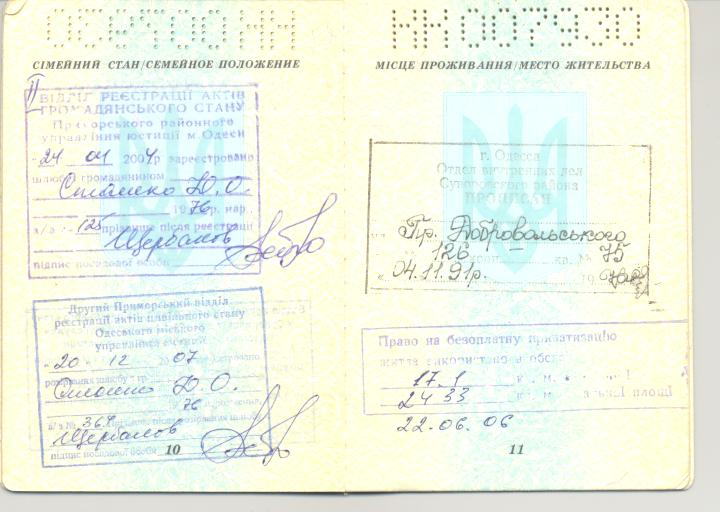 СІМЕЙНИЙ СТАН/СЕМЕЙНОЕ ПОЛОЖЕНИЕ
II
ВІДДІЛ РЕЄСТРАЦІЇ АКТІВ
ГРОМАДЯНСЬКОГО СТАНУ
Приморського районного
управління юстиції м. Одеси
24 04 2004 зареєстровано
шлюб з громадянином
Ю. О.
1976 р. нар.
а/з № 125 прізвище після реєстрації
Щербаков
підпис посадової особи
Другий Приморський відділ
реєстрації актів цивільного стану
Одеського міського
управління юстиції
20 12 2007
розірвання шлюбу з гр.
Ю. О.
76
а/з № 364
Щербаков
підпис посадової особи
10
КК 007930
МІСЦЕ ПРОЖИВАННЯ/МЕСТО ЖИТЕЛЬСТВА
г. Одесса
Отдел внутренних дел
Суворовского района
ПРОПИСАН
Пр. Добровольського
126 кв. № 75
04.11.91р.
Право на безоплатну приватизацію
житла використано в обсязі
17.1
24 33 площі
22.06.06
11